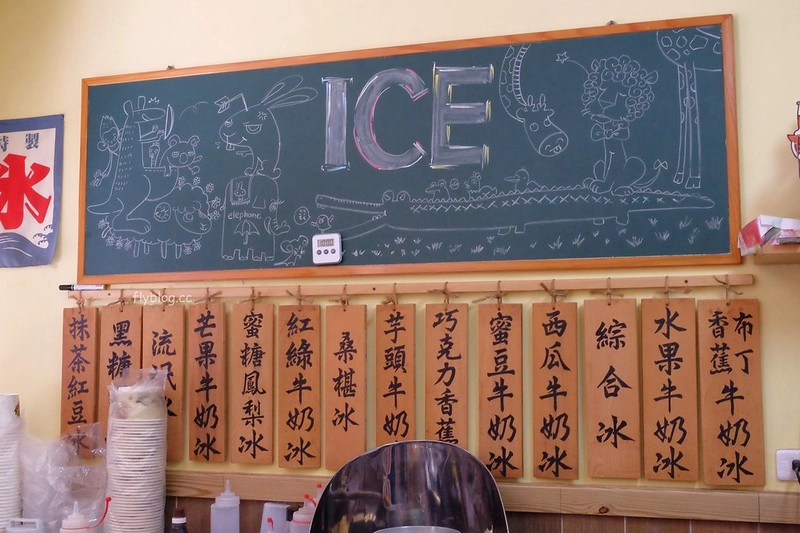 ICE
elephone
特製
氷
flyblog.cc
抹茶紅豆冰
黑糖
流氓冰
芒果牛奶冰
蜜糖鳳梨冰
紅綠牛奶冰
桑椹冰
芋頭牛奶冰
巧克力香蕉
蜜豆牛奶冰
西瓜牛奶冰
綜合冰
水果牛奶冰
布丁香蕉牛奶冰